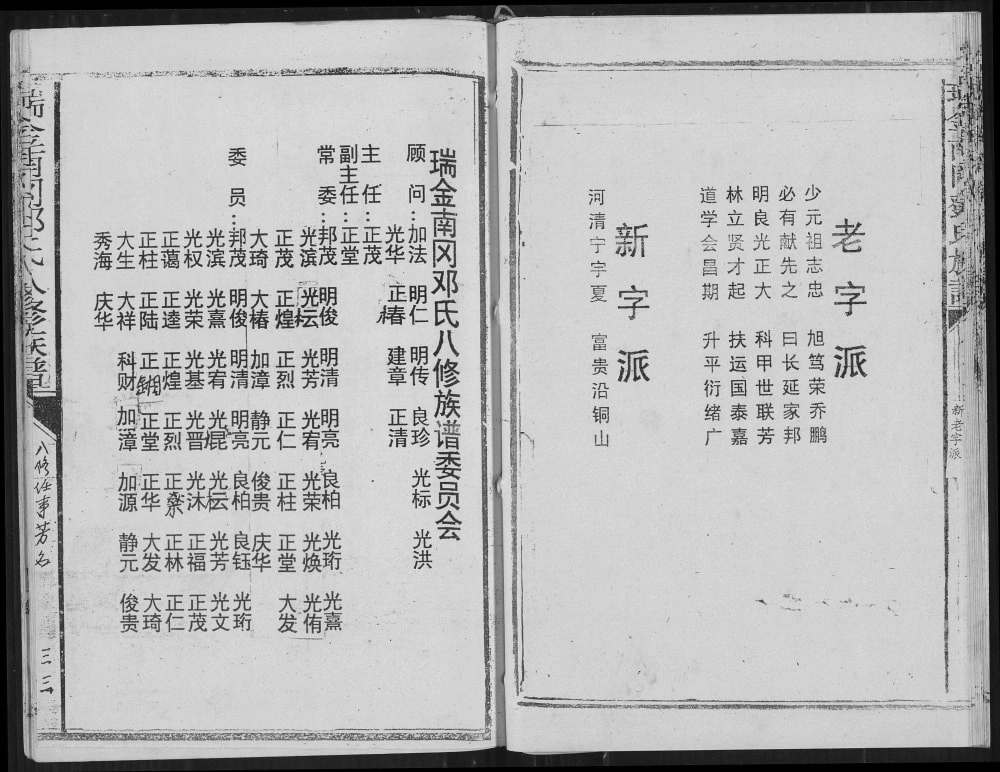 瑞金南冈邓氏族谱
新老字派
老字派
少元祖志忠 旭笃荣乔鹏
必有献先之 曰长延家邦
明良光正大 科甲世联芳
林立贤才起 扶运国泰嘉
道学会昌期 升平衍绪广
新字派
河清宁宇夏 富贵沿铜山
瑞金南冈邓氏八修族谱委员会
顾问：加法 明仁 明传 良珍 光标 光洪
光华 正春 建章 正清
主任：正茂
副主任：正堂
常委：邦茂 明俊 明清 明亮 良柏 光珩 光熹
光滨 光坛 光芳 光宥 光荣 光焕 光侑
正茂 正煌 正烈 正仁 正柱 正堂 大发
大琦 大椿 加漳 静元 俊贵 庆华
委员：邦茂 明俊 明清 明亮 良柏 良钰 光珩
光滨 光熹 光宥 光焜 光坛 光芳 光文
光权 光荣 光基 光晋 光沐 正福 正茂
正蔼 正逵 正煌 正烈 正燊 正林 正仁
正柱 正陆 正锎 正堂 正华 大发 大琦
大生 大祥 科财 加漳 加源 静元 俊贵
秀海 庆华
瑞金南冈邓氏八修族谱
八修任事芳名
三三